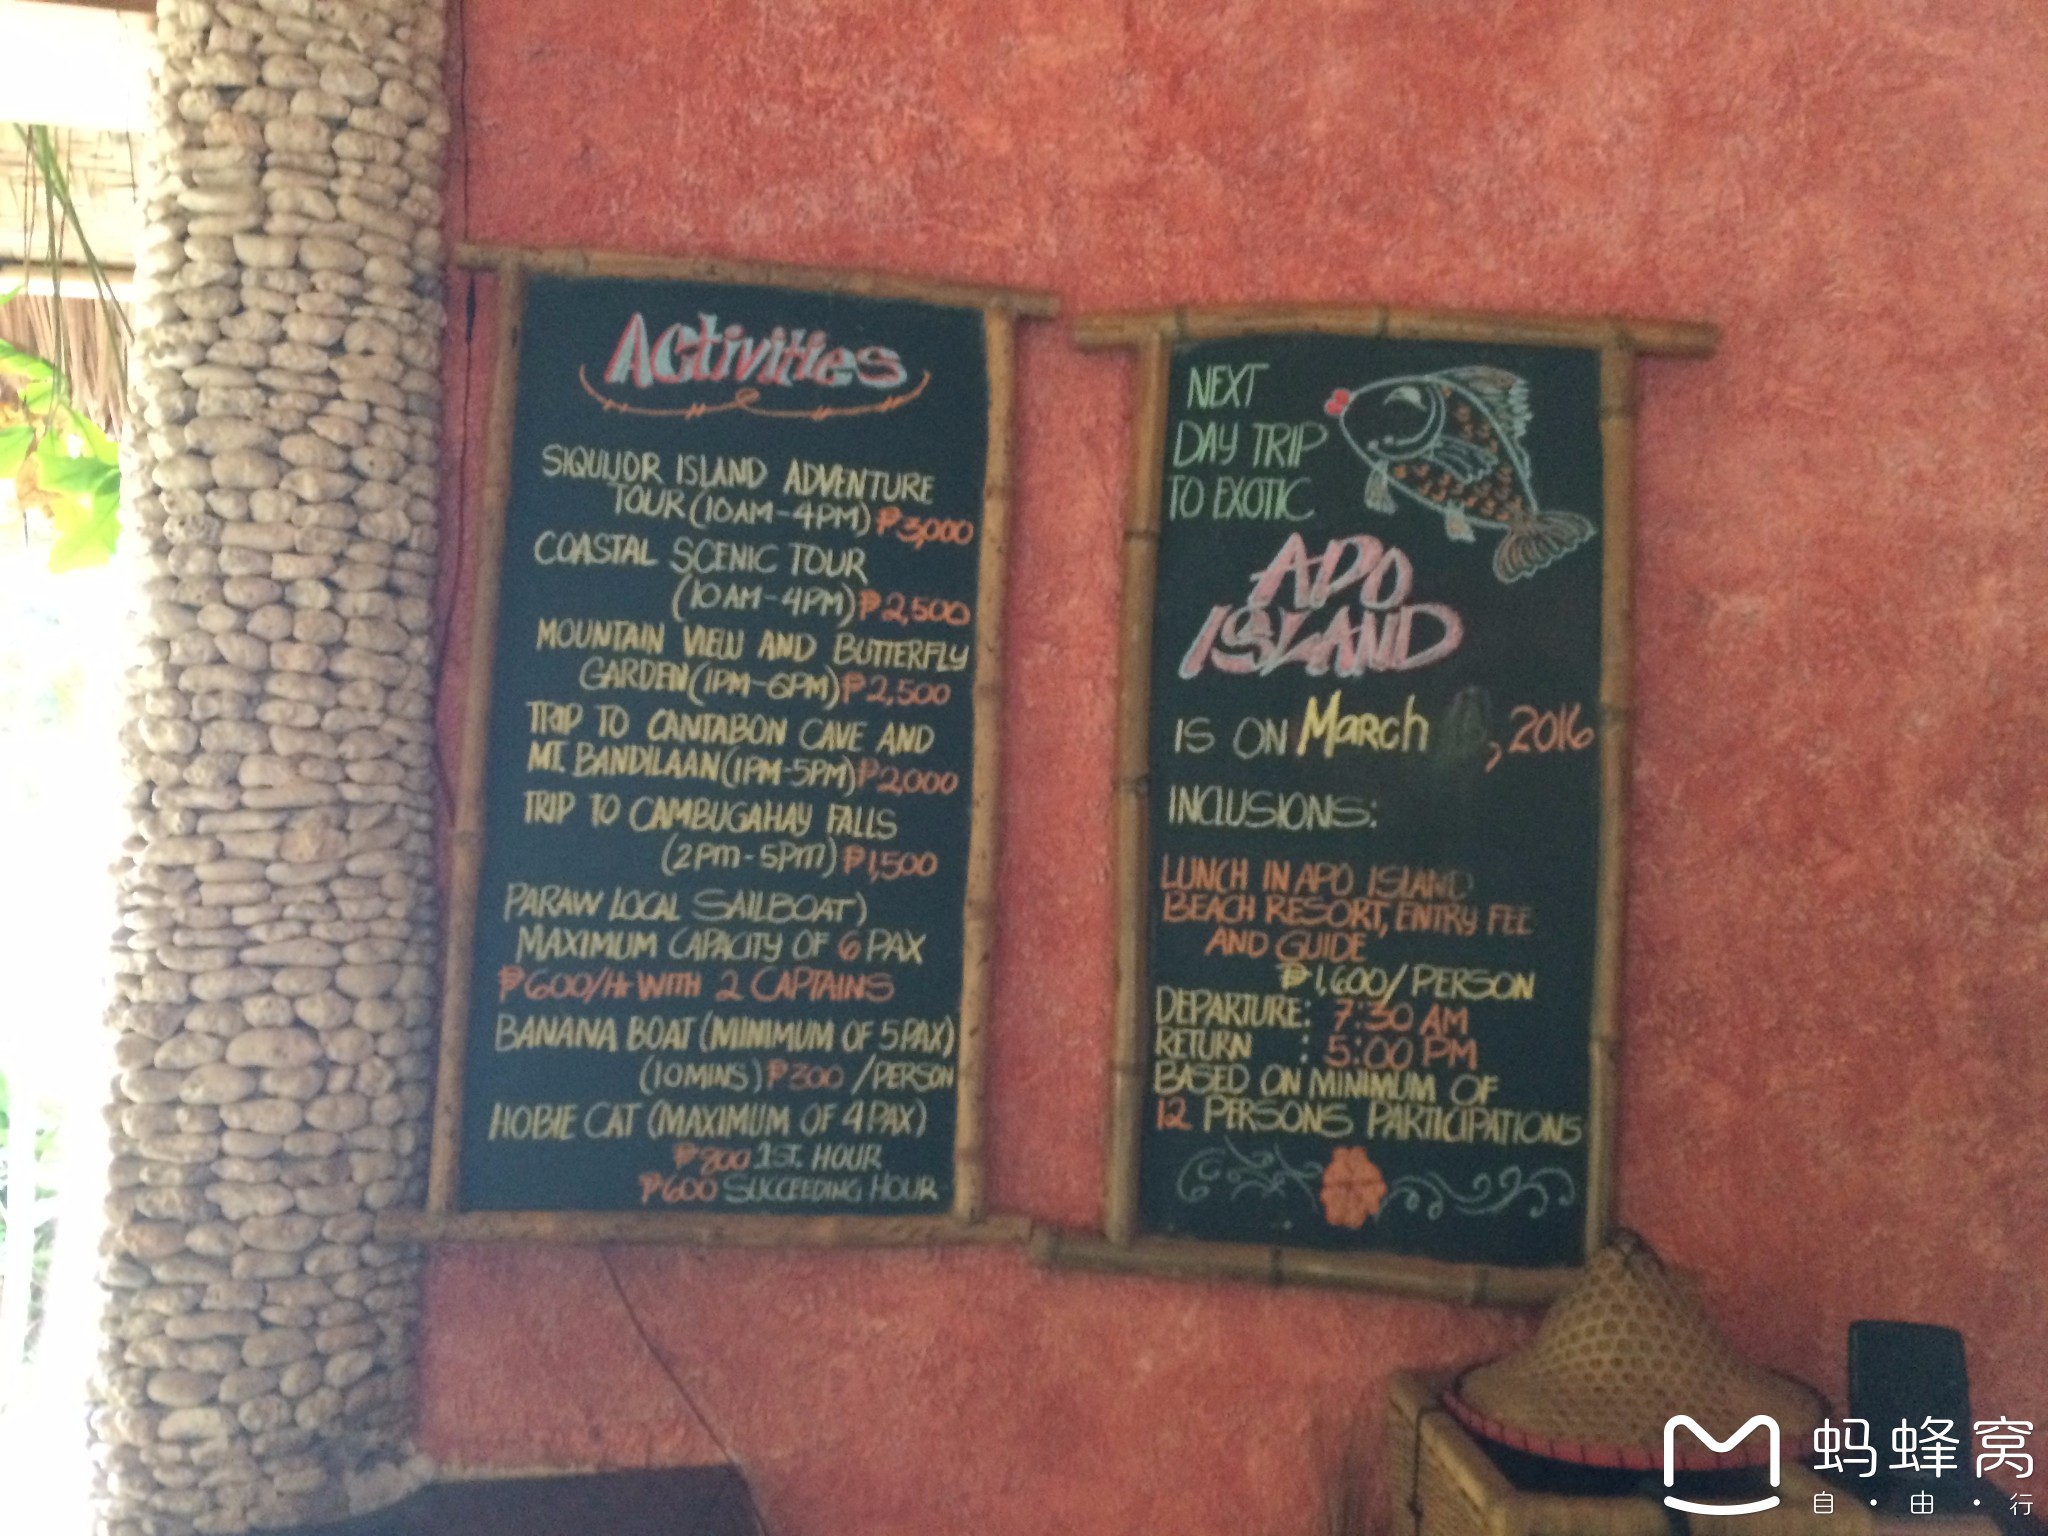 Activities
SIQUIJOR ISLAND ADVENTURE
TOUR (10AM-4PM) ₱3,000
COASTAL SCENIC TOUR
(10AM-4PM) ₱2,500
MOUNTAIN VIEW AND BUTTERFLY
GARDEN (1PM-6PM) ₱2,500
TRIP TO CANTABON CAVE AND
MT. BANDILAAN (1PM-5PM) ₱2,000
TRIP TO CAMBUGAHAY FALLS
(2PM-5PM) ₱1,500
PARAW LOCAL SAILBOAT)
MAXIMUM CAPACITY OF 6 PAX
₱600/Hr WITH 2 CAPTAINS
BANANA BOAT (MINIMUM OF 5 PAX)
(10MINS) ₱300 /PERSON
HOBIE CAT (MAXIMUM OF 4 PAX)
₱800 1ST. HOUR
₱600 SUCCEEDING HOUR
NEXT
DAY TRIP
TO EXOTIC
APO
ISLAND
IS ON March , 2016
INCLUSIONS:
LUNCH IN APO ISLAND
BEACH RESORT, ENTRY FEE
AND GUIDE
₱1,600/PERSON
DEPARTURE: 7:30 AM
RETURN : 5:00 PM
BASED ON MINIMUM OF
12 PERSONS PARTICIPATIONS
蚂蜂窝
自·由·行